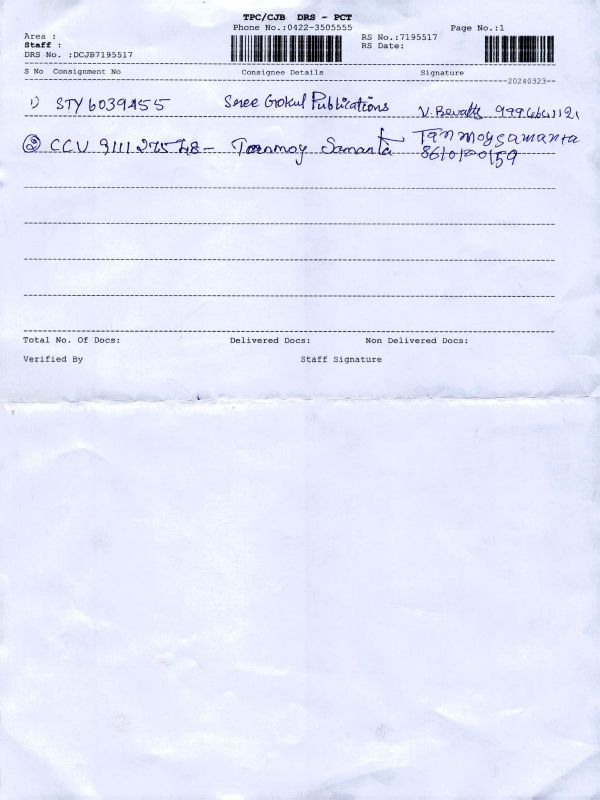 TPC/CJB DRS - PCT
Phone No.:0422-3505555 Page No.:1
Area : RS No.:7195517
Staff : RS Date:
DRS No. :DCJB7195517
S No Consignment No Consignee Details Signature
20240323
1) STY6039455 Sree Gokul Publications V.
② CCV 911127548 - Tanmoy Samanta Tanmoy Samanta
Total No. Of Docs: Delivered Docs: Non Delivered Docs:
Verified By Staff Signature